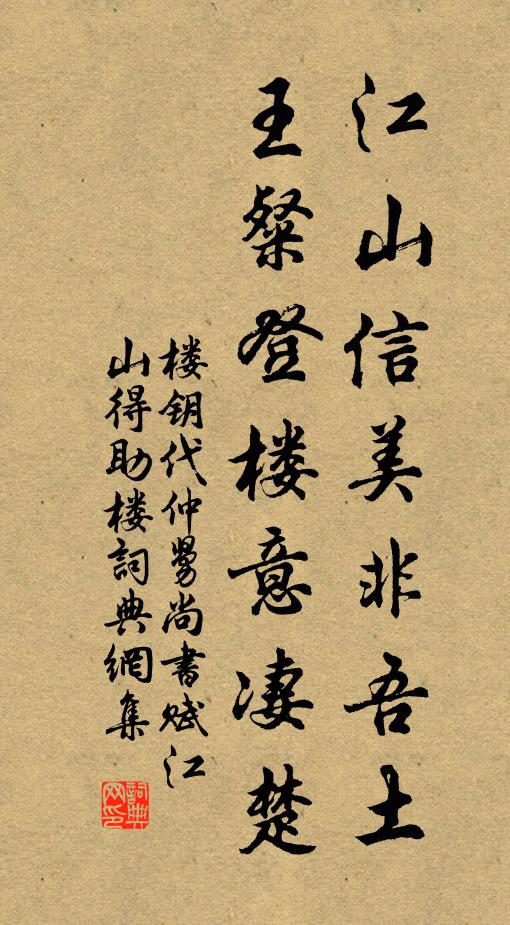 江山信美非吾土
王粲登楼意凄楚
楼钥代仲舅尚書赋江
山得助楼詞典網集
詞典网印